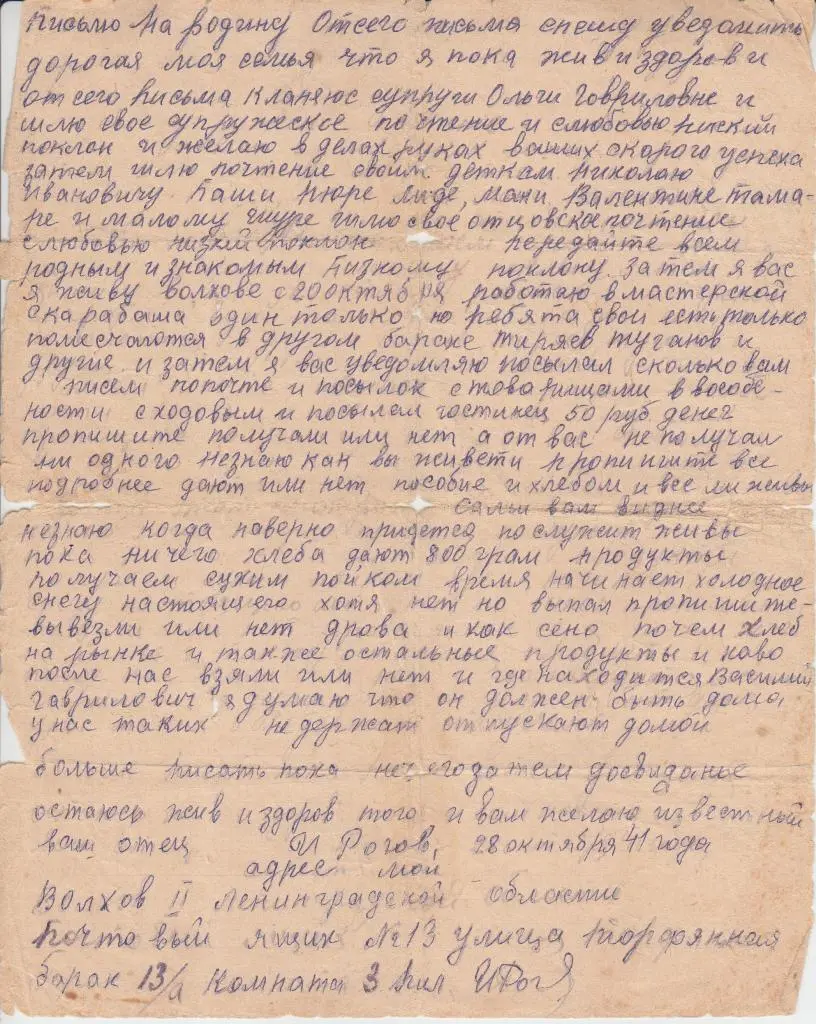 Письмо На родину Отсего письма спешу уведомить
дорогая моя семья что я пока жив и здоров и
от сего письма кланяюс супруги Ольги Говриловне и
шлю свое супружеское почтение и слюбовью ниский
поклон и желаю в делах руках ваших скарого успеха
затем шлю почтение своим деткам Николаю
Ивановичу Паши Нюре Лиде, мани Валентине тама-
ре и малому шуре шлю свое отцовска почтение
слюбовью низкий поклон передайте всем
родным и знакомым Низкому поклону. Затем я вас
я живу волхове с 20 октября работаю в мастерской
скарабаша один только но ребята свои есть только
помесчаются в другом бараке Тиряев туганов и
другие и затем я вас уведомляю посылал сколько вам
писем попочте и посылок с товарищами в вособе-
ности сходовым и посылал гостинец 50 руб денег
пропишите получали или нет а от вас не получал
ни одного незнаю как вы живети пропишите все
подробнее дают или нет пособие и хлебом и все ли живы
Сальи вам виднее
незнаю когда наверно придется послужит живы
пока ничего хлеба дают 800 грам продукты
получаем сухим пойком время начинает холодное
снегу настоящего хотя нет но выпал пропишите
вывезли или нет дрова и как сено почем хлеб
на рынке и также остальные продукты и каво
после нас взяли или нет и где находится Василий
Гаврилович я думаю что он должен быть дома,
у нас таких не держат отпускают домой
больше писать пока нечего затем досвиданье
остаюсь жив и здоров того и вам желаю известный
ваш отец И Рогов, 28 октября 41 года
адрес мой
Волхов II Ленинградской области
Почтовый ящик № 13 улица Торфянная
барак 13/а комната 3 пил ИРог